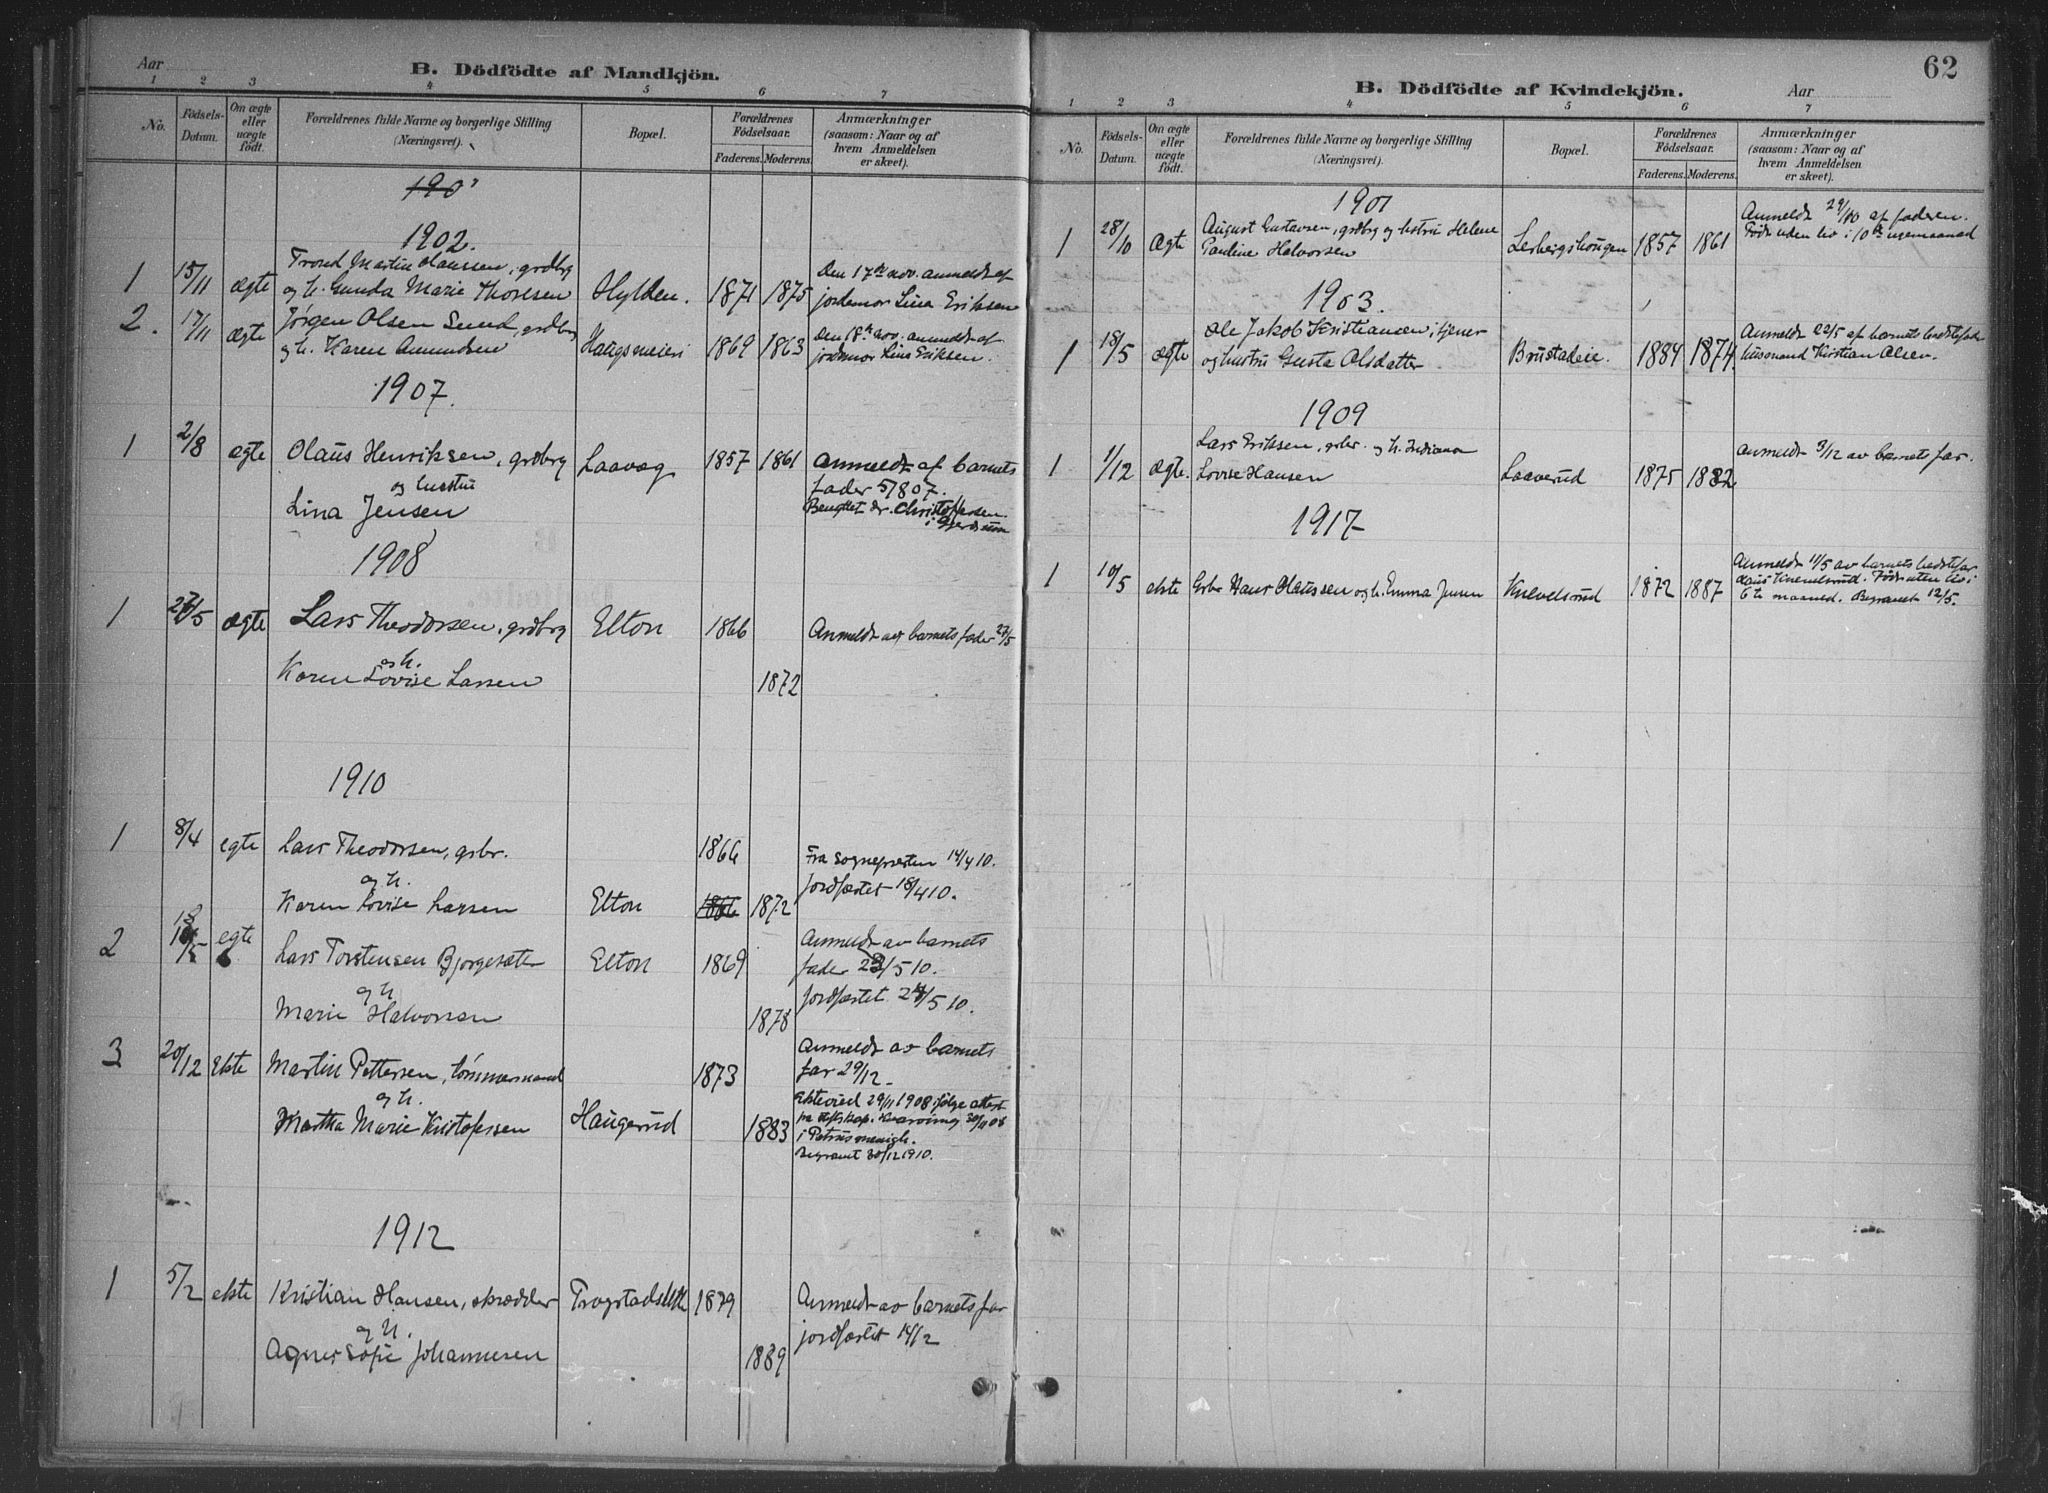 Aar
B. Dödfödte af Mandkjön.
1 2 3 4 5 6 7
No.
Födsels-
Datum.
Om ægte
eller
uægte
födt.
Forældrenes fulde Navne og borgerlige Stilling
(Næringsvei).
Bopæl.
Forældrenes
Födselsaar.
Faderens. Moderens.
Anmærkninger
(saasom: Naar og af
hvem Anmeldelsen
er skeet).
190
1902.
1 15/11 ægte Trond Martin Olaussen, grdbrg
og h. Gunda Marie Thoresen Hylden. 1871 1875 Den 17de nov. anmeldt af
jordemor Lina Eriksen
2. 17/11 ægte Jörgen Olsen Sund, grdbrg
og h. Karen Amundsen Haugsmeieri 1869 1863 Den 18de nov. anmeldt af
jordemor Lina Eriksen.
1907.
1 2/8 ægte Olaus Henriksen, grdbrg Laavag 1857 1861 Anmeldt af barnets
og hustru
fader 5/8 07.
Lina Jensen
Benyttet dr. Christophersen
i Gjerdrum
1908
1 27/5 ægte Lars Theodorsen, grdbrg Elton 1866 Anmeldt av barnets fader 27/5
og h.
Karen Lovise Larsen 1872
1910
1 8/4 egte Lars Theodorsen, grbr. 1866 Fra sognepresten 14/4 10.
og h.
jordfæstet 18/4 10.
Karen Lovise Larsen Elton 1866 1872
2 18/5 egte Lars Torstensen Bjorgesæter Elton 1869 Anmeldt av barnets
fader 23/5 10.
og h.
jordfæstet 24/5 10.
Marie Halvorsen 1878
3 20/12 Ekte Martin Pettersen, tömmermand 1873 Anmeldt av barnets
far 29/12 -
og h.
Ekteviet 29/11 1908 ifølge attest
Martha Marie Kristofersen Haugerud 1883
i Petrus menigh.
Begravet 30/12 1910.
1912
1 5/2 ekte Kristian Hansen, skrædder 1879 Anmeldt av barnets far
og h.
jordfæstet 14/2
Agnes Sofie Johannesen 1889
62
B. Dödfödte af Kvindekjön.
Aar
1 2 3 4 5 6 7
No.
Födsels-
Datum.
Om ægte
eller
uægte
födt.
Forældrenes fulde Navne og borgerlige Stilling
(Næringsvei).
Bopæl.
Forældrenes
Födselsaar.
Faderens. Moderens.
Anmærkninger
(saasom: Naar og af
hvem Anmeldelsen
er skeet).
1901
1 28/10 Ægte August Gustavsen, grdbrg og hustru Helene
Pauline Halvorsen Lerbergshougen 1857 1861 Anmeldt 29/10 af faderen.
Födt uden liv i 10de
1903.
1 18/5 ægte Ole Jakob Kristiansen, tjener
og hustru Gusta Olsdatter Brustadeie. 1884 1874. Anmeldt 22/5 af barnets bedstefader
husmand Kristian Olsen.
1909
1 1/12 ægte. Lars Eriksen, grbr. og h. Indiana
Lovise Hansen Laaverud 1875 1882 anmeldt 3/12 av barnets far.
1917
1 10/5 ekte Grbr Hans Olaussen og h. Emma Jensen Knevelsrud 1872 1887 Anmeldt 11/5 av barnets bedstefar
Olaus Knevelsrud. Född uten liv i
6te maaned. Begravet 12/5.